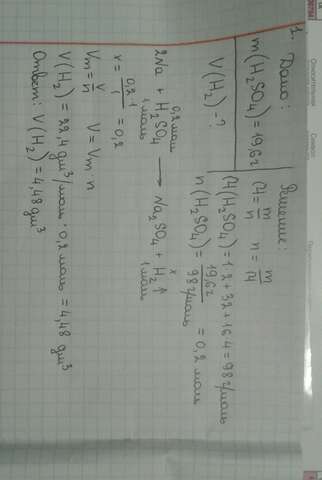 1. Дано:
m(H₂SO₄)=19,6г
V(H₂)-?
Решение:
M = m/n n = m/M
M(H₂SO₄)=1·2+32+16·4=98 г/моль
n(H₂SO₄) = 19,6г/98 г/моль = 0,2 моль
0,2 моль x
2Na + H₂SO₄ → Na₂SO₄ + H₂↑
1 моль 1 моль
x = 0,2·1/1 = 0,2
Vm = V/n V = Vm · n
V(H₂) = 22,4 дм³/моль · 0,2 моль = 4,48 дм³
Ответ: V(H₂)=4,48 дм³